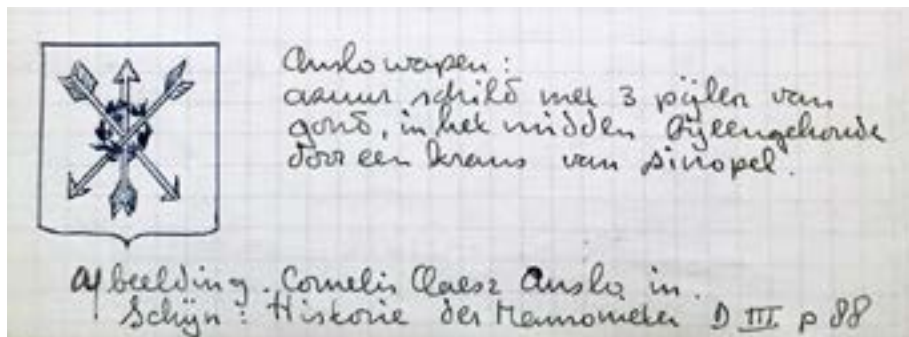 Anslo wapen:
azuur schild met 3 pijlen van
goud, in het midden bijeengehoude
door een krans van sinopel.
afbeelding. Cornelis Claesz Anslo in.
Schijn: Historie der Mennoneten D III p 88